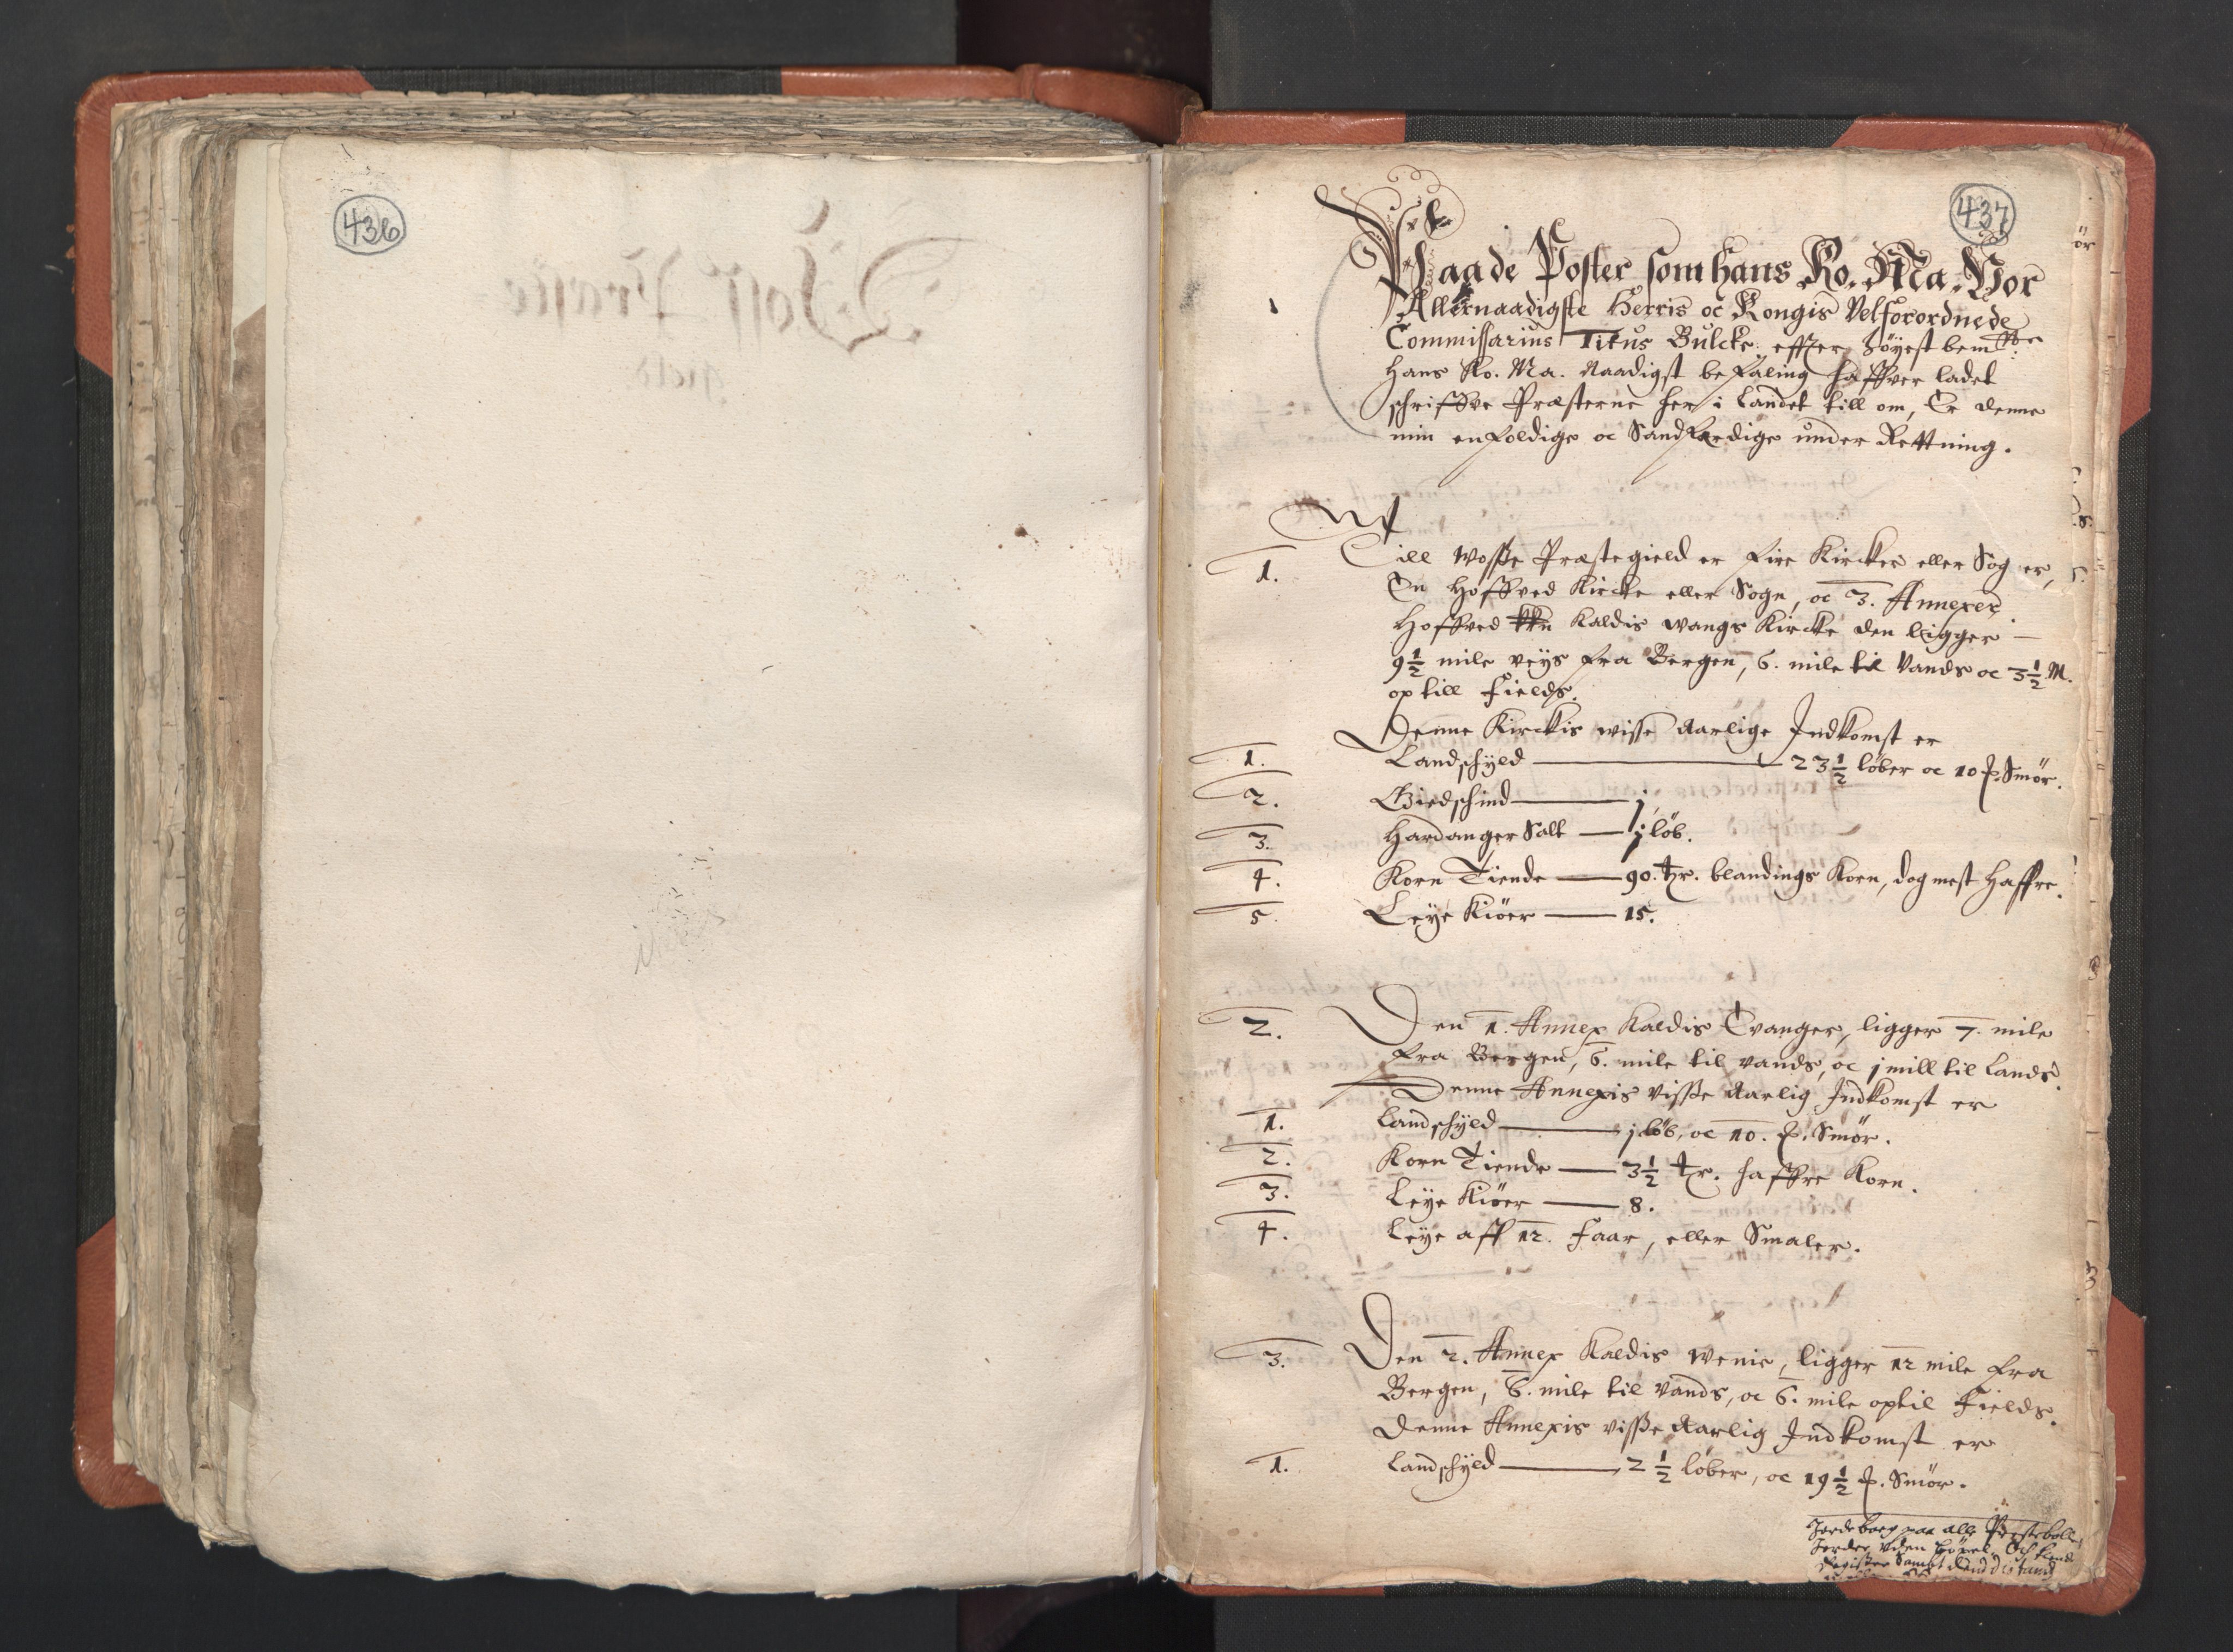 436
437
Paa de Poster som hans Ko. Ma. Vor
Allernaadigste Herris oc Kongis Velforordnede
Commissarius Titus Bulcke effter Höyest bem:te
Hans Ko. Ma. Naadigst befaling haffver ladet
schriffve Præsterne her i Landet till om, Er denne
min enfoldige oc Sandfærdige under Rettning.
1. Till Wosse Præstegield er fire Kircker eller Sogner,
En Hoffved Kircke eller Sogn, oc 3. Annexer,
Hoffved Kaldis Wangs Kircke den ligger
9 1/2 mile veys fra Bergen, 6. mile til Vands oc 3 1/2 M.
op till Fields.
Denne Kirckis wisse Aarlige Indkomst er
1. Landschyld 23 1/2 löber oc 10 p. Smör.
2. Giedschind j
3. Hardanger Salt j löb.
4. Korn Tiende 90. tr. blandings Korn, dog mest Haffre.
5. Leye Kiöer 15.
2. Den 1. Annex Kaldis Evanger, ligger 7. mile
fra Bergen, 6. mile til vands, oc j mill til Lands.
Denne Annexis Visse Aarlig Indkomst er
1. Landschyld j löb, oc 10. p. Smör.
2. Korn Tiende 3 1/2 tr. haffre Korn.
3. Leye Kiöer 8.
4. Leye aff 12. Faar, eller Smaler.
3. Den 2. Annex Kaldis Wenie, ligger 12 mile fra
Bergen, 6. mile til Vands, oc 6. mile optil Fields.
Denne Annexis Visse Aarlig Indkomst er
1. Landschyld 2 1/2 löber, oc 19 1/2 p. Smör.
Jordebog paa alle Prestebolle
Jorder
Register Sampt